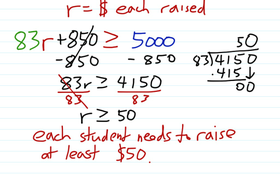 r = $ each raised
83r + 850 ≥ 5000
-850 -850
83r ≥ 4150
83 83
r ≥ 50
50
83)4150
-415↓
00
each student needs to raise
at least $50.